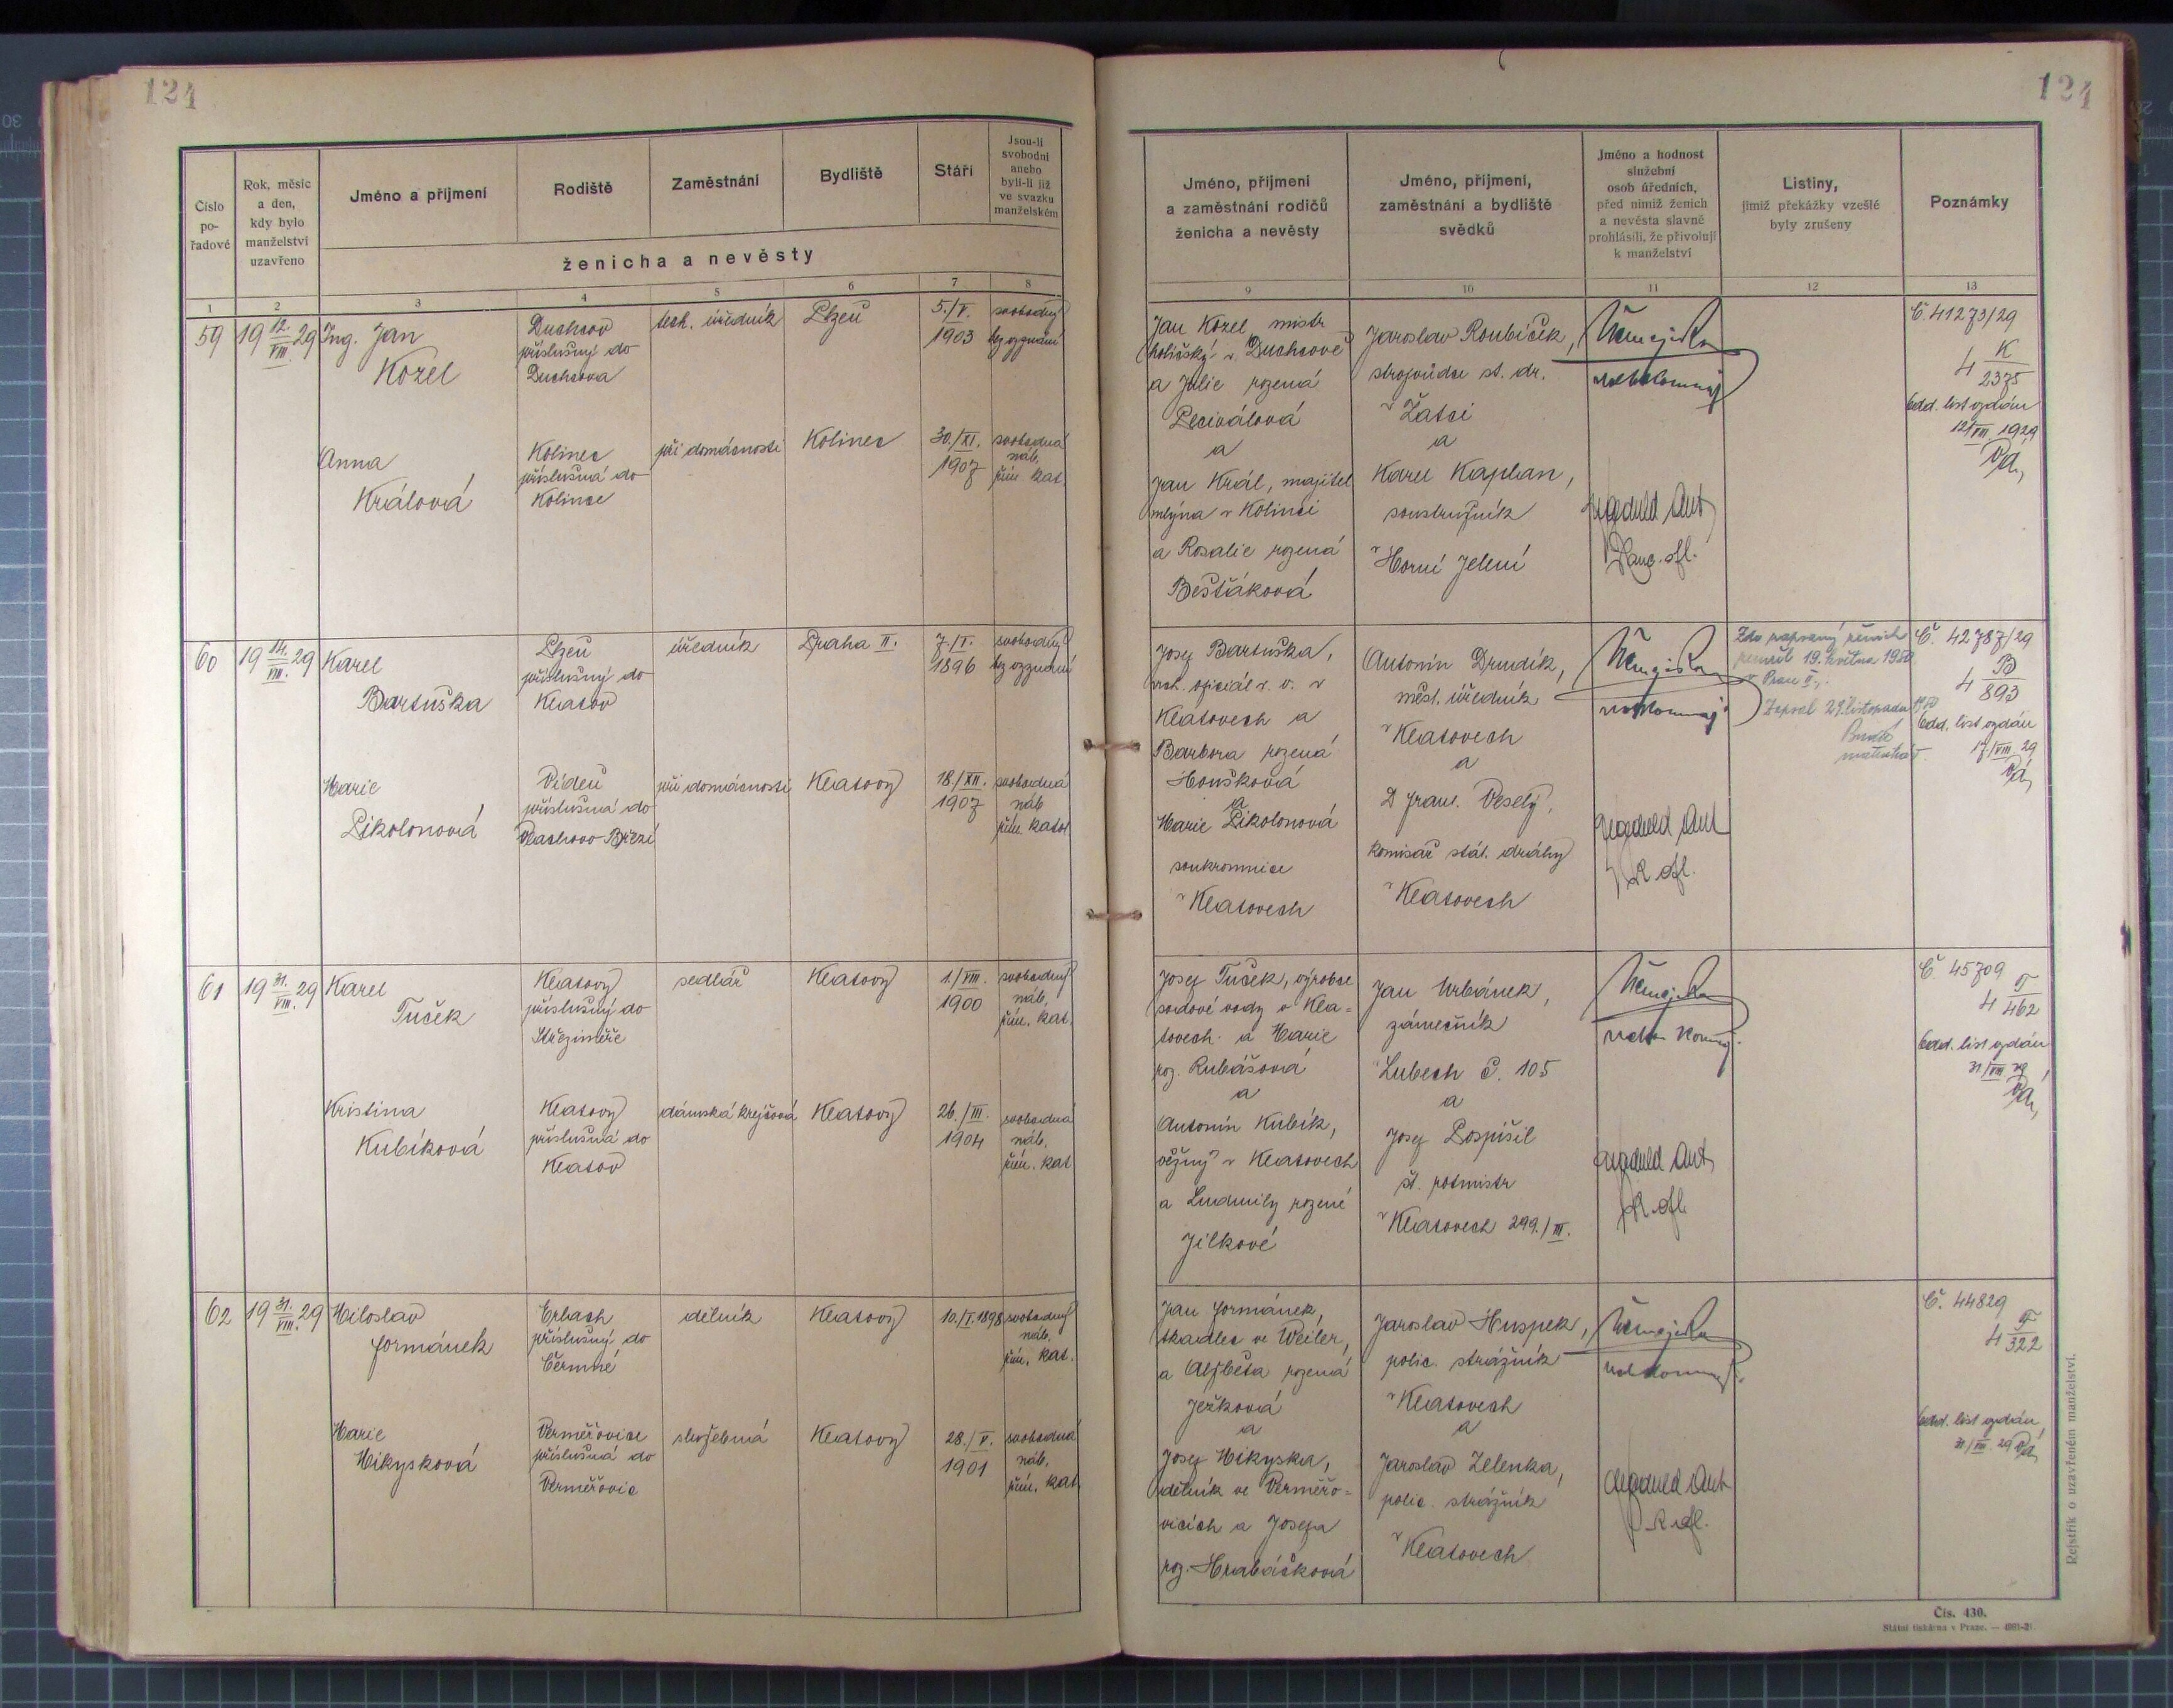 124
124
Číslo pořadové
Rok, měsíc a den, kdy bylo manželství uzavřeno
Jméno a příjmení
Rodiště
Zaměstnání
Bydliště
Stáří
Jsou-li svobodni anebo byli-li již ve svazku manželském
ženicha a nevěsty
1 2 3 4 5 6 7 8
Jméno, příjmení a zaměstnání rodičů ženicha a nevěsty
Jméno, příjmení, zaměstnání a bydliště svědků
Jméno a hodnost služební osob úředních, před nimiž ženich a nevěsta slavně prohlásili, že přivolují k manželství
Listiny, jimiž překážky vzešlé byly zrušeny
Poznámky
9 10 11 12 13
59
19 12./VIII. 29
Ing. Jan
Kozel
Duchcov
příslušný do
Duchcova
tech. úředník
Plzeň
5./V.
1903
svobodný
bez vyznání
Anna
Králová
Kolinec
příslušná do
Kolince
při domácnosti
Kolinec
30./XI.
1907
svobodná
náb.
řím. kat.
Jan Kozel, mistr
holičský v Duchcově
a Julie rozená
a
Jan Král, majitel
mlýna v Kolinci
a Rosalie rozená
Bešťáková
Jaroslav Roubíček,
strojvůdce st. dr.
v Žatci
a
Karel Kaplan,
soustružník
v Horní Jelení
Č. 41273/29
4 K/2375
odd. list vydán
12/VIII 1929
60
19 14./VIII. 29
Karel
Bartuška
Plzeň
příslušný do
Klatov
úředník
Praha II.
7./I.
1896
svobodný
bez vyznání
Marie
Pikolonová
Vídeň
příslušná do
Vlachovo Březí
při domácnosti
Klatovy
18./XII.
1907
svobodná
náb.
řím. katol
Josef Bartuška,
vrch. oficiál v. v. v
Klatovech a
Barbora rozená
Houšková
a
Marie Pikolonová
soukromnice
v Klatovech
Antonín Drudík,
měst. úředník
v Klatovech
a
D Fran. Veselý,
komisař stát. dráhy
v Klatovech
Zde zapsaný ženich
zemřel 19. května 1950
v Praze II.
Zapsal 29. listopadu 1950
Č. 42787/29
4 B/893
odd. list vydán
17/VIII. 29
61
19 31./VIII. 29
Karel
Tuček
Klatovy
příslušný do
Střezimíře
sedlář
Klatovy
1./VIII.
1900
svobodný
náb.
řím. kat.
Kristina
Kubíková
Klatovy
příslušná do
Klatov
dámská krejčová
Klatovy
26./III.
1904
svobodná
náb.
řím. kat
Josef Tuček, výrobce
sodové vody v Kla=
tovech a Marie
roz. Rubášová
a
Antonín Kubík,
věžný v Klatovech
a Ludmily rozené
Jílkové
Jan Urbánek,
zámečník
Lubech č. 105
a
Josef Pospíšil
št. rotmistr
v Klatovech 299./III.
Č. 45709
4 T/462
odd. list vydán
31/VIII 29
62
19 31./VIII. 29
Miloslav
Formánek
Erbach
příslušný do
Čermné
dělník
Klatovy
10./I. 1898
svobodný
náb.
řím. kat.
Marie
Mikysková
Verměřovice
příslušná do
Verměřovic
služebná
Klatovy
28./V.
1901
svobodná
náb.
řím. kat.
Jan Formánek,
tkadlec ve Weiler,
a Alžběta rozená
Ježková
a
Josef Mikyska,
dělník ve Verměřo=
vicích a Josefa
roz. Hrabáčková
Jaroslav Huspek,
polic. strážník
v Klatovech
a
Jaroslav Zelenka,
polic. strážník
v Klatovech
Č. 44829
4 F/322
odd. list vydán
31/VIII. 29
Rejstřík o uzavřeném manželství.
Čís. 430.
Státní tiskárna v Praze.